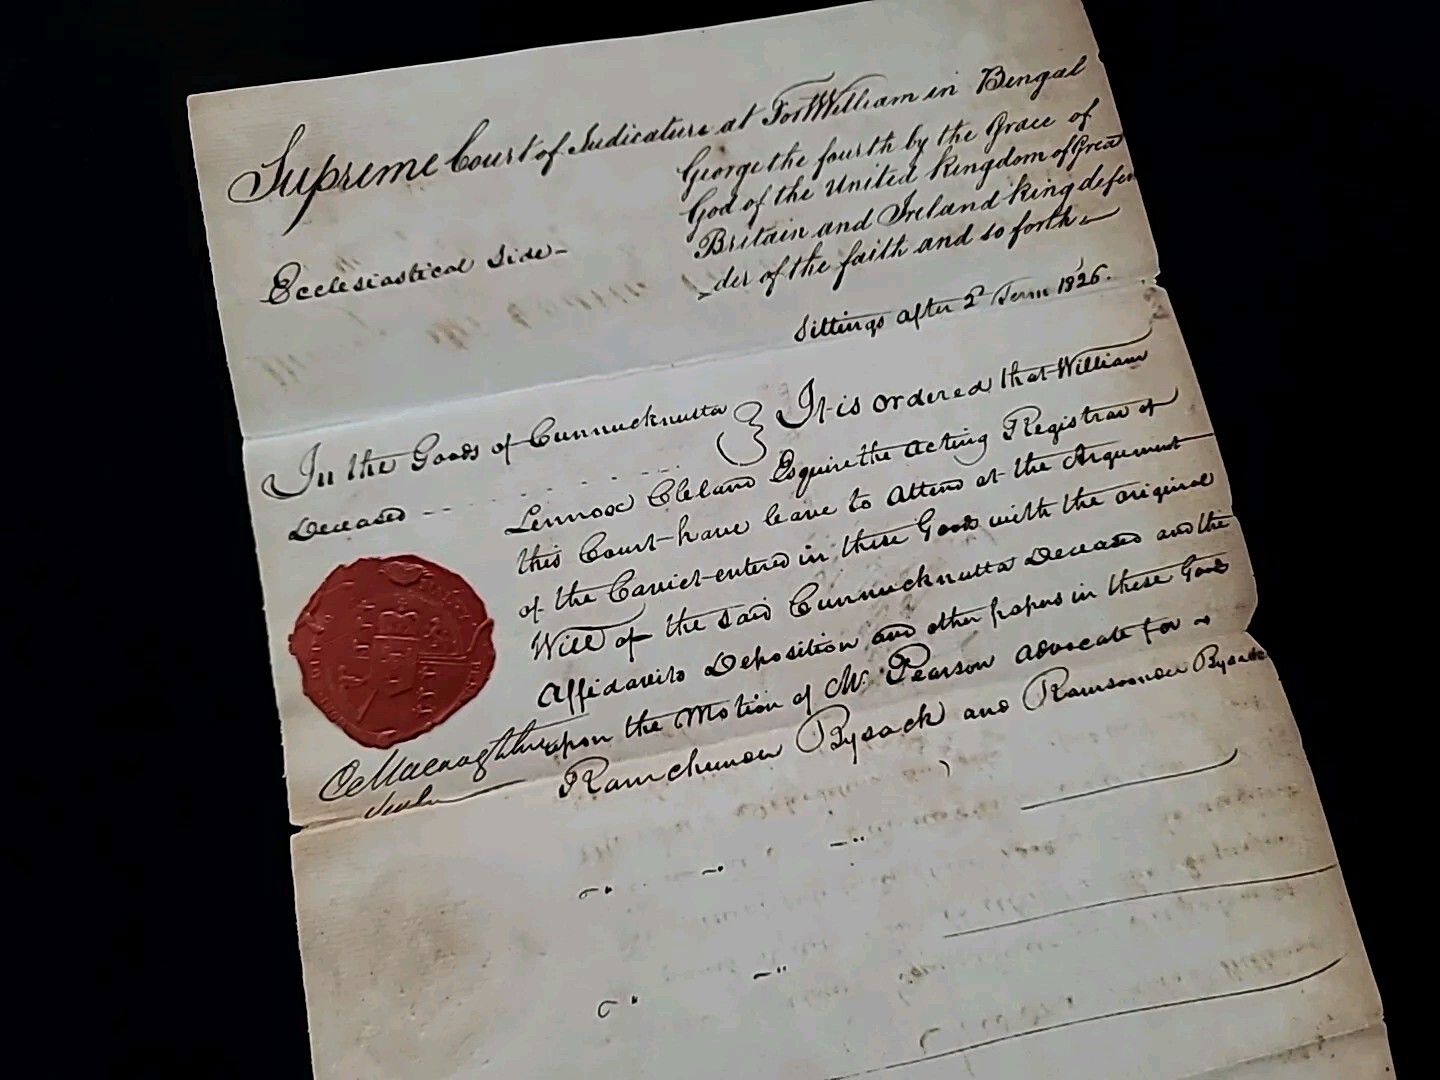 Supreme Court of Judicature at Fort William in Bengal
George the fourth by the Grace of
God of the United Kingdom of Grea
Britain and Ireland King defen
der of the faith and so forth
Ecclesiastical Side
Sittings after 2d Term 1826.
In the Goods of Cunnucknutta
Deceased
It is ordered that William
Lennox Cleland Esquire the Acting Registrar of
this Court have leave to Attend at the Argument
of the Caviet entered in these Goods with the original
Will of the said Cunnucknutta Deceased and the
Affidavits Deposition and other papers in these Goods
upon the Motion of Mr. Pearson advocate for
Ramchunder Bysack and Ramsoonder Bysack
Macnaghten